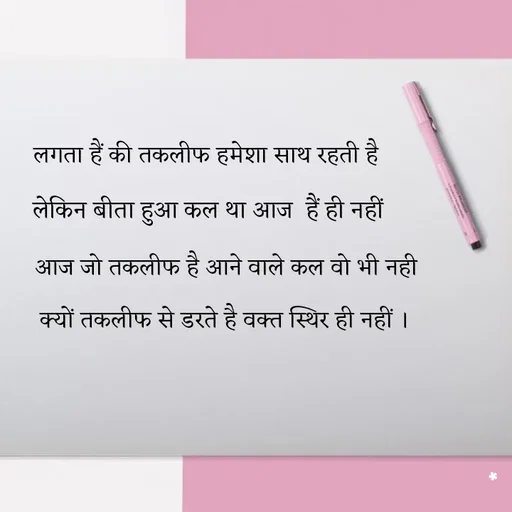 लगता हैं की तकलीफ हमेशा साथ रहती है
लेकिन बीता हुआ कल था आज हैं ही नहीं
आज जो तकलीफ है आने वाले कल वो भी नही
क्यों तकलीफ से डरते है वक्त स्थिर ही नहीं ।